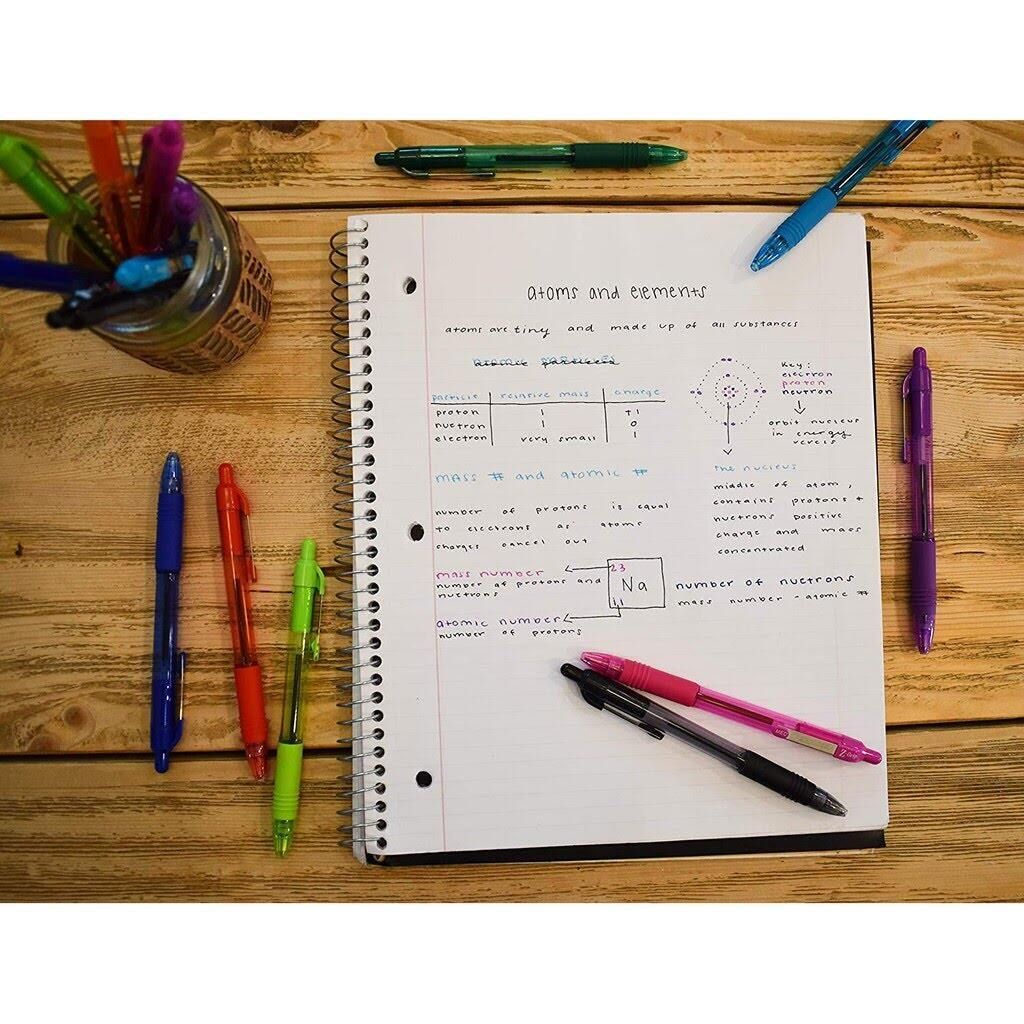 atoms and elements
atoms are tiny and made up of all substances
particle relative mass charge
proton 1 +1
nuetron 1 0
electron very small 1
Key:
electron
proton
neutron
orbit nucleus
in energy
the nucleus
middle of atom,
contains protons +
nuetrons positive
charge and mass
concentrated
mass # and atomic #
number of protons is equal
to electrons as atoms
charges cancel out
mass number
number of protons and
nuetrons
23
Na
11
atomic number
number of protons
number of nuetrons
mass number - atomic #